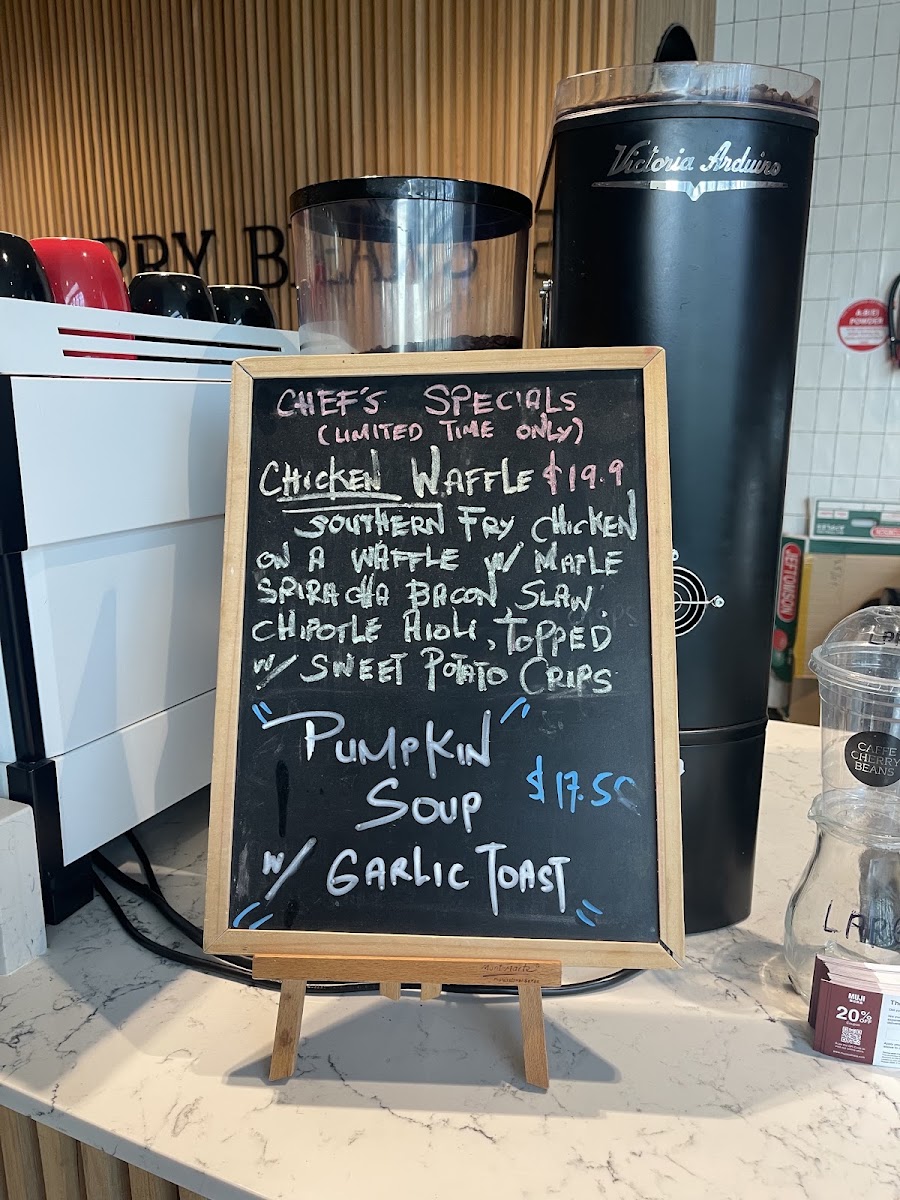 Victoria Arduino
RRY BEANS
CHEF'S SPECIALS
(LIMITED TIME ONLY)
CHICKEN WAFFLE $19.9
SOUTHERN FRY CHICKEN
ON A WAFFLE W/ MAPLE
SRIRACHA BACON SLAW,
CHIPOTLE AIOLI, TOPPED
W/ SWEET POTATO CRIPS
"PUMPKIN"
SOUP $17.50
W/ GARLIC TOAST
CAFFE
CHERRY
BEANS
MUJI
20% OFF